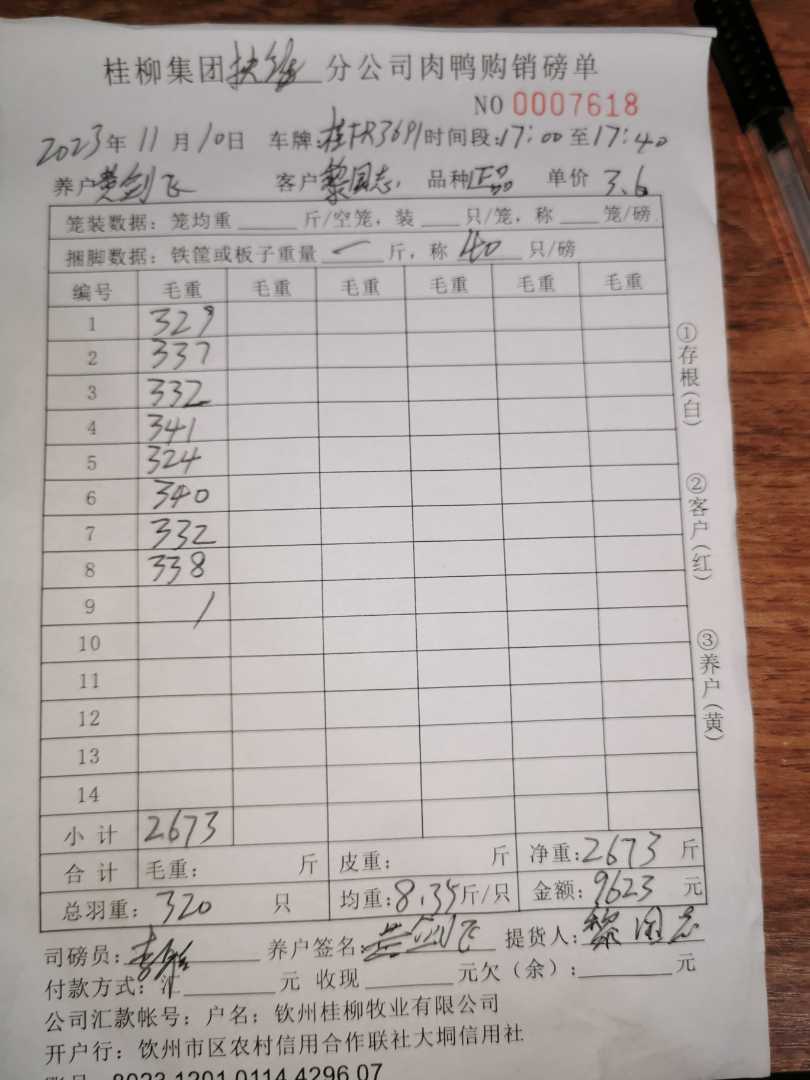 桂柳集团扶绥分公司肉鸭购销磅单
NO 0007618
2023年11月10日 车牌:桂FR3691时间段:17:00至17:40
养户黄剑飞 客户黎国志 品种正品 单价 3.6
笼装数据：笼均重____斤/空笼，装___只/笼，称___笼/磅
捆脚数据：铁筐或板子重量 一 斤，称 40 只/磅
编号 毛重 毛重 毛重 毛重 毛重 毛重
1 329
2 337
3 332
4 341
5 324
6 340
7 332
8 338
9 /
10
11
12
13
14
小计 2673
合计 毛重： 斤 皮重： 斤 净重:2673 斤
总羽重：320 只 均重:8.35斤/只 金额:9623 元
①存根(白)
②客户(红)
③养户(黄)
司磅员: 养户签名:黄剑飞 提货人:黎国志
付款方式:汇______元 收现______元欠（余）:______元
公司汇款帐号：户名；钦州桂柳牧业有限公司
开户行：钦州市区农村信用合作联社大垌信用社
8023 1201 0114 4296 07